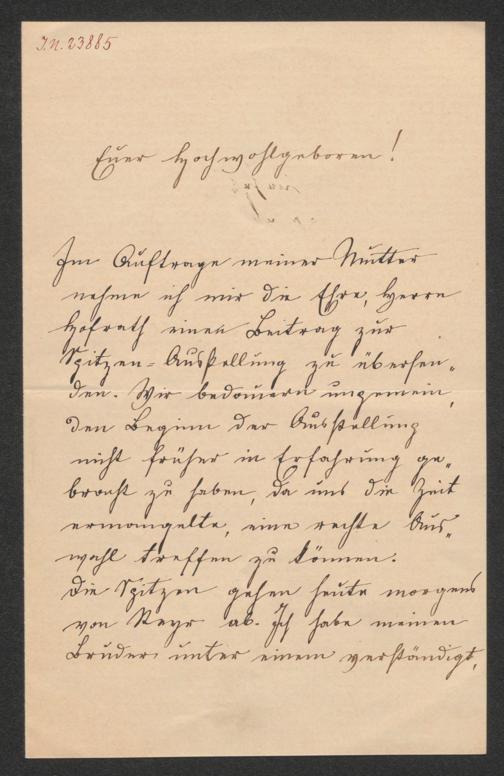 J.N. 23885
Euer Hochwohlgeboren!
Im Auftrage meiner Mutter
nehme ich mir die Ehre, Herrn
Hofrath einen Beitrag zur
Spitzen-Ausstellung zu übersen„
den. Wir bedauern ungemein,
den Beginn der Ausstellung
nicht früher in Erfahrung ge„
bracht zu haben, da uns die Zeit
ermangelte, eine rechte Aus„
wahl treffen zu können.
Die Spitzen gehen heute morgens
von Steyr ab. Ich habe meinen
Bruder unter einem verständigt,